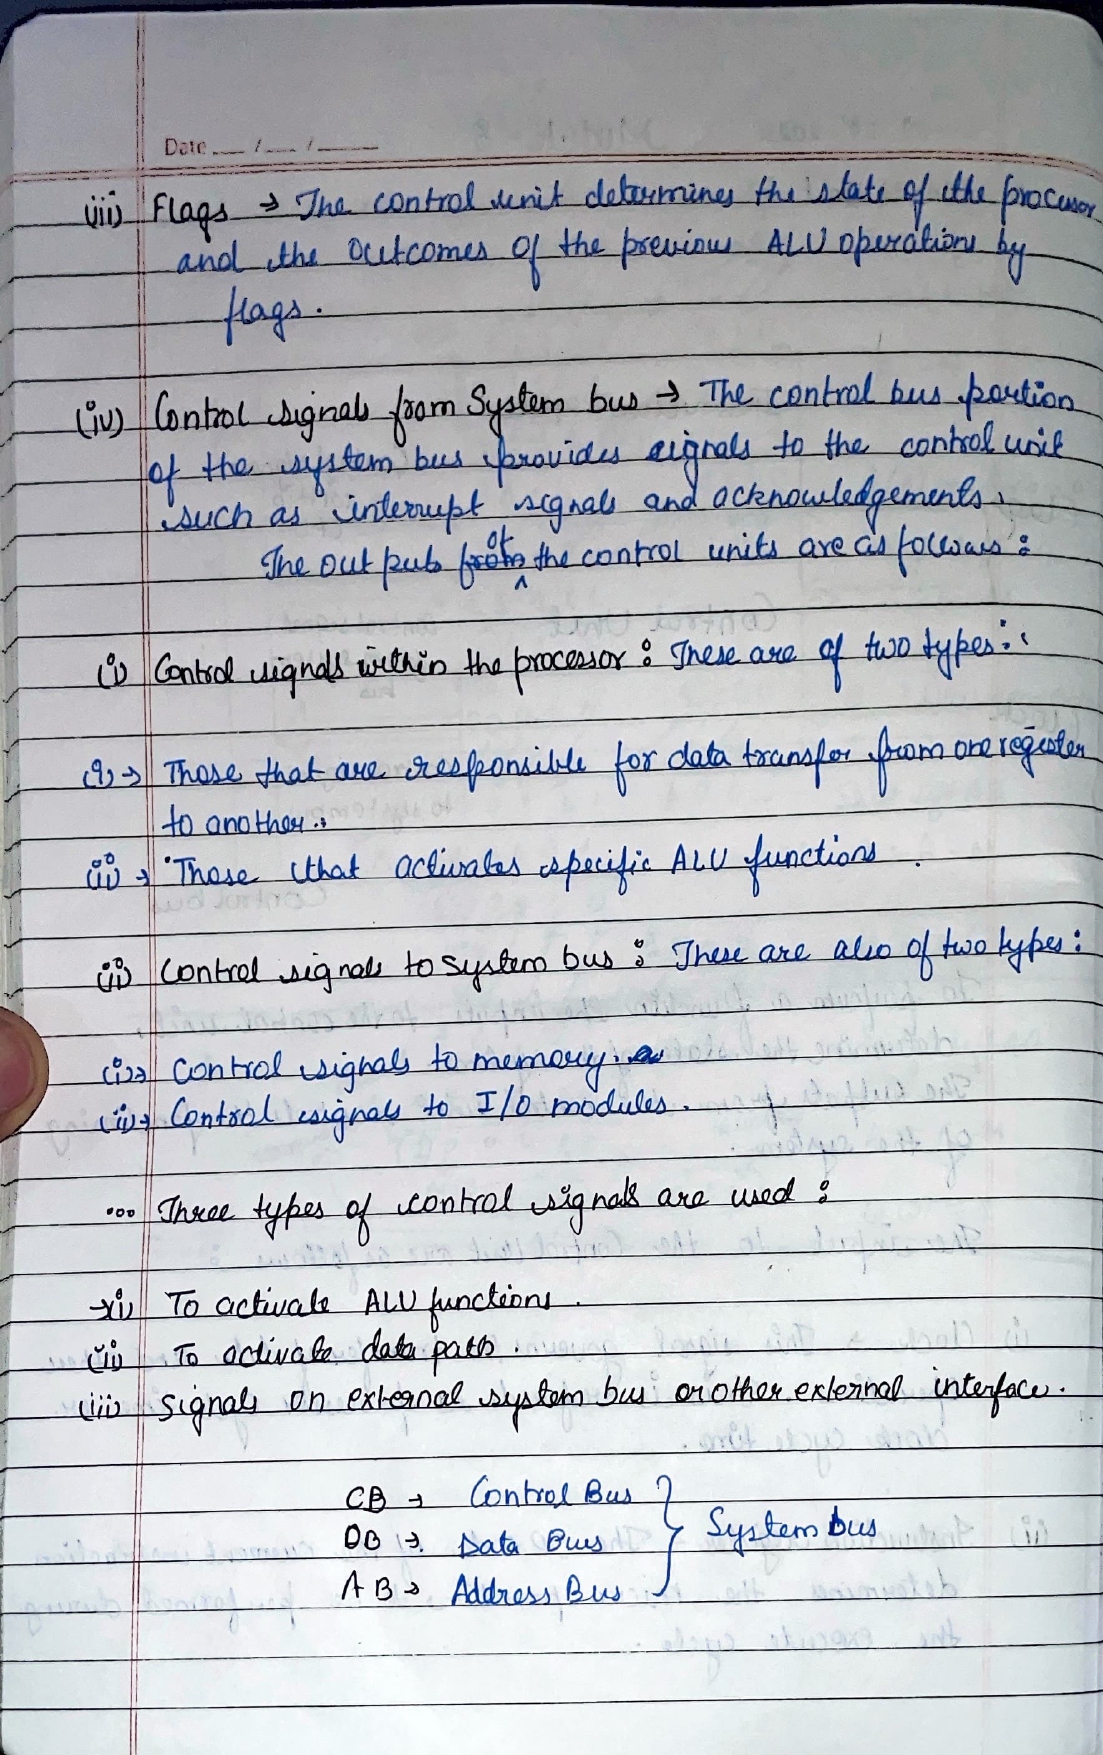 Date ___ / ___ / ___
(iii) Flags → The control unit determines the state of the processor
and the outcomes of the previous ALU operations by
flags.
(iv) Control signals from System bus → The control bus portion
of the system bus provides signals to the control unit
such as interrupt signals and acknowledgements.
of
The out puts from the control units are as follows :
(i) Control signals within the processor : These are of two types :
(i) → Those that are responsible for data transfer from one register
to another.
(ii) → Those that activates specific ALU functions.
(ii) Control signals to system bus : These are also of two types :
(i) → Control signals to memory.
(ii) → Control signals to I/O modules.
... Three types of control signals are used :
→ (i) To activate ALU functions.
(ii) To activate data path.
(iii) signals on external system bus or other external interface.
CB → Control Bus
DB → Data Bus } System bus
AB → Address Bus